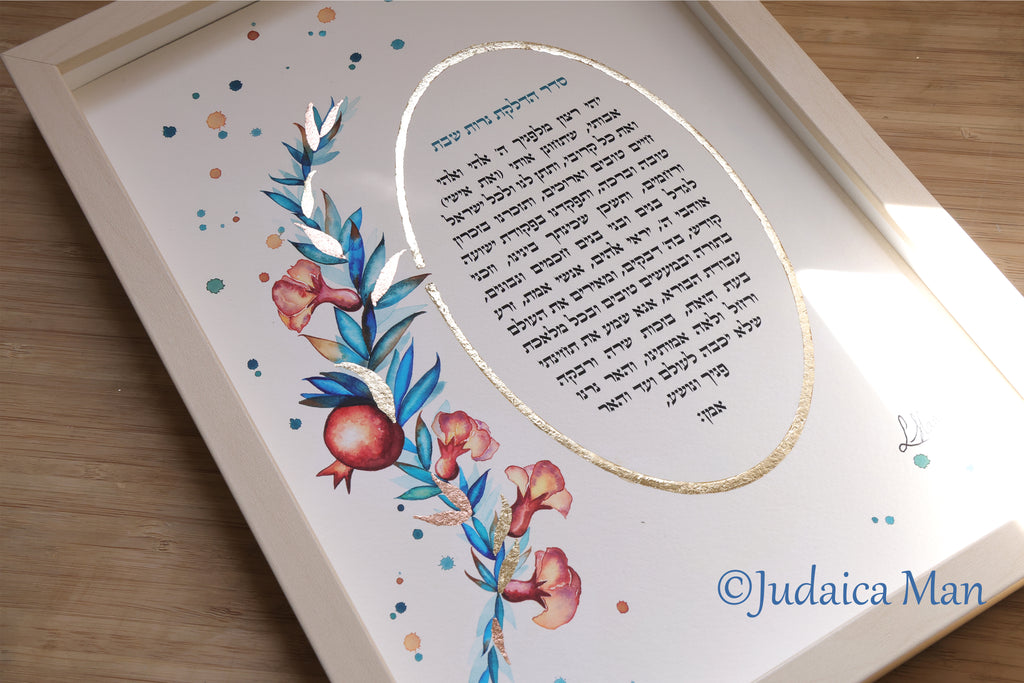 סדר הדלקת נרות שבת
יהי רצון מלפניך ה' אלהי ואלהי
אבותי, שתחונן אותי (ואת אישי)
ואת כל קרובי, ותתן לנו ולכל ישראל
חיים טובים וארוכים, ותזכרנו בזכרון
טובה וברכה, ותפקדנו בפקודת ישועה
ורחמים, ותשכן שכינתך בינינו, וזכני
לגדל בנים ובני בנים חכמים ונבונים,
אוהבי ה', יראי אלהים, אנשי אמת, זרע
קודש, בה' דבקים, ומאירים את העולם
בתורה ובמעשים טובים ובכל מלאכת
עבודת הבורא, אנא שמע את תחינתי
בעת הזאת, בזכות שרה ורבקה
ורחל ולאה אמותינו, והאר נרנו
שלא יכבה לעולם ועד והאר
פניך ונושע,
אמן:
©Judaica Man